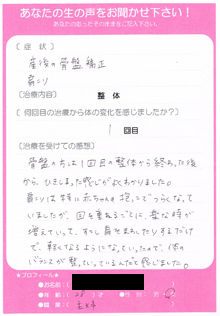 あなたの生の声をお聞かせ下さい！
あなたの思ったそのままをご記入下さい。
(症状)
産後の骨盤矯正
肩こり
(治療内容) 整体
(何回目の治療から体の変化を感じましたか？)
1 回目
(治療を受けての感想)
骨盤の方は1回目の整体から終わった後
から、ひきしまった感じがよくわかりました。
肩こりは特に赤ちゃんの抱っこでつらくなって
いましたが、回を重ねるごとに楽な時が
増えていって、すこし肩をまわしたりするだけ
で、軽くなるようになっていったので、体の
バランスが整っていっているんだと感じました。
★プロフィール★
●お名前：(
●年齢：(
●職業：( 主婦